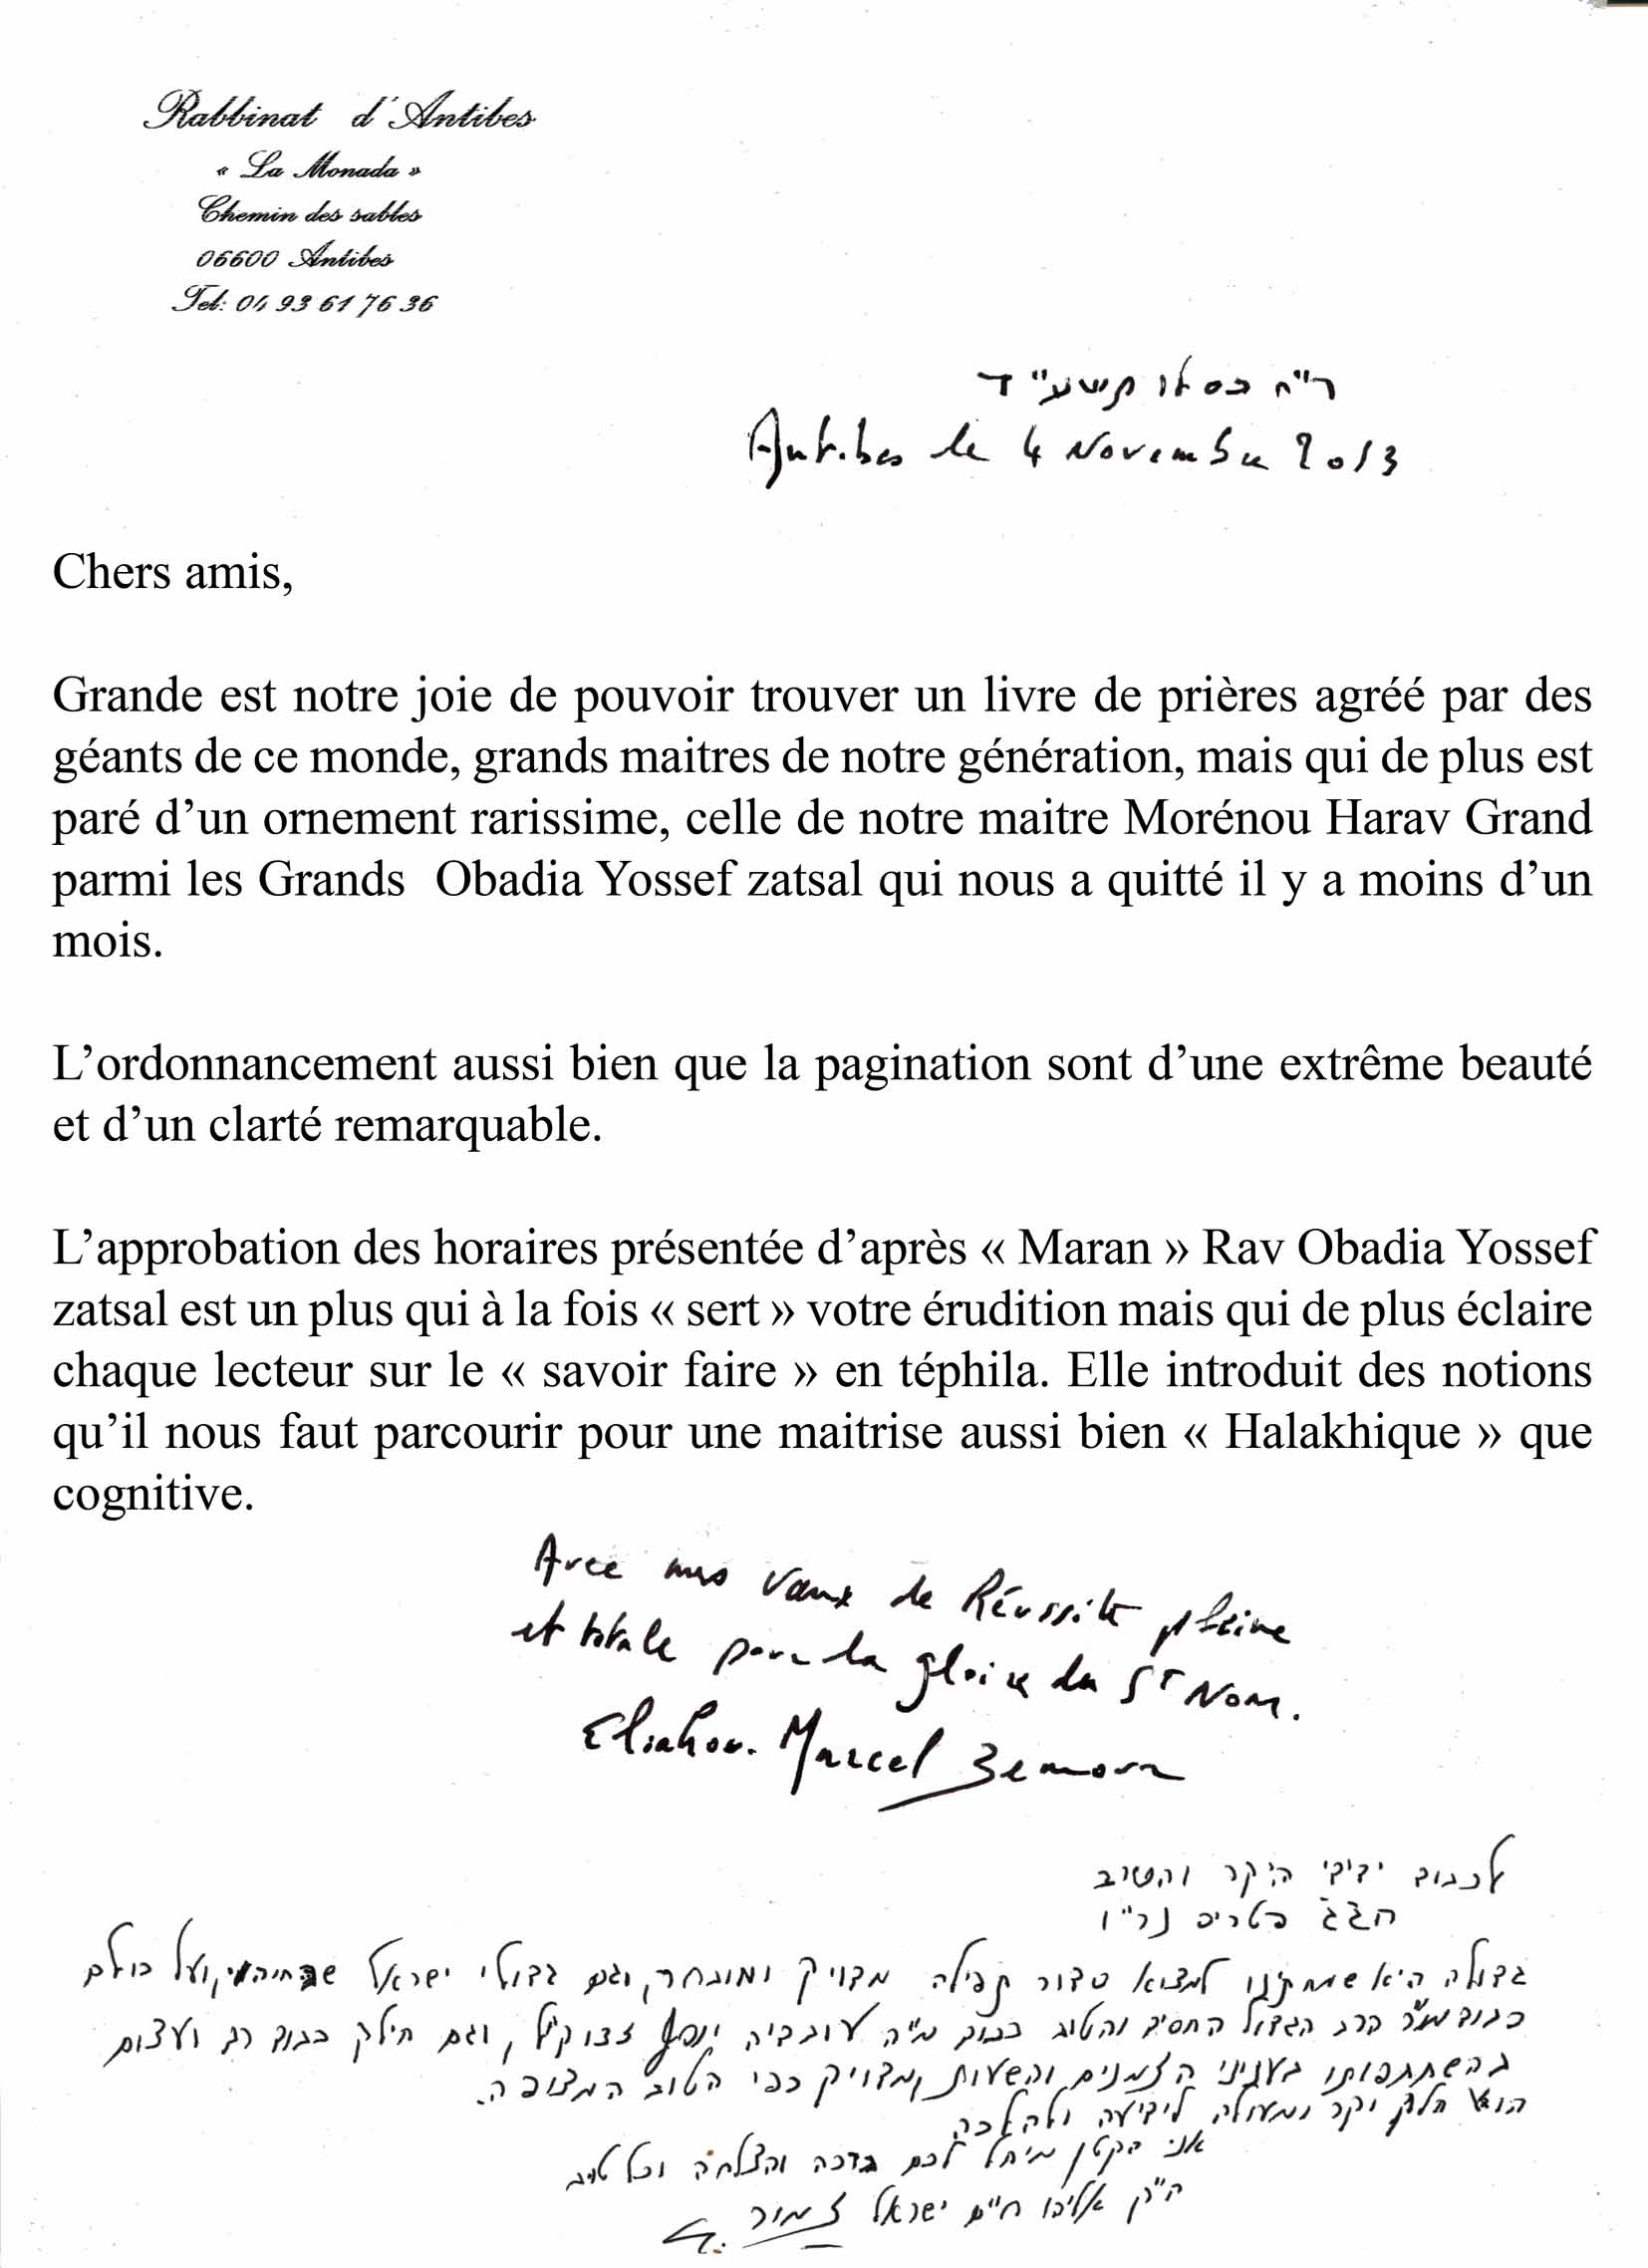 Rabbinat d'Antibes
« La Monada »
Chemin des sables
06600 Antibes
Tel: 04 93 61 76 36
ר"ח כסלו תשע"ד
Antibes le 4 Novembre 2013
Chers amis,
Grande est notre joie de pouvoir trouver un livre de prières agréé par des
géants de ce monde, grands maitres de notre génération, mais qui de plus est
paré d’un ornement rarissime, celle de notre maitre Morénou Harav Grand
parmi les Grands  Obadia Yossef zatsal qui nous a quitté il y a moins d’un
mois.
L’ordonnancement aussi bien que la pagination sont d’une extrême beauté
et d’un clarté remarquable.
L’approbation des horaires présentée d’après « Maran » Rav Obadia Yossef
zatsal est un plus qui à la fois « sert » votre érudition mais qui de plus éclaire
chaque lecteur sur le « savoir faire » en téphila. Elle introduit des notions
qu’il nous faut parcourir pour une maitrise aussi bien « Halakhique » que
cognitive.
Avec mes vœux de Réussite pleine
et totale pour la gloire du St Nom.
Eliahou. Marcel Zemour
לכבוד ידידי היקר והטוב
נר"ו
גדולה היא שמחתנו למצוא סדור תפילה מדויק ומובחר, וגם גדולי ישראל ועל כולם
כבוד הרב הגדול החסיד והטוב כבוד עובדיה יוסף זצוק"ל, וגם חילק כבוד רב ועצום
בהשתתפותו בעניני הזמנים והשעות, ומדויק כפי הטוב המצופה.
הוא חלק יקר ומעולה לידיעה ולהלכה
אני הקטן מיחל לכם ברכה והצלחה וכל טוב
ה"ק אליהו חיים ישראל זמור